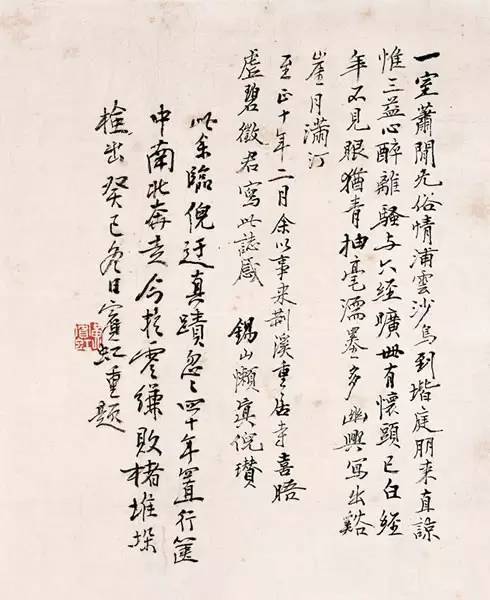 一室蕭閒无俗情浦雲沙鳥到堦庭朋來直諒
惟三益心醉離騷与六經曠世有懷頭已白經
年不見眼猶青抽毫濡墨多幽興寫出谿
崖月滿汀
至正十年二月余以事來荆溪重居寺喜晤
虛碧徵君寫此誌感 錫山懶真倪瓚
此余臨倪迂真蹟忽〻四十年置行篋
中南北奔走今於零縑敗楮堆垛
檢出癸巳冬日賓虹重題